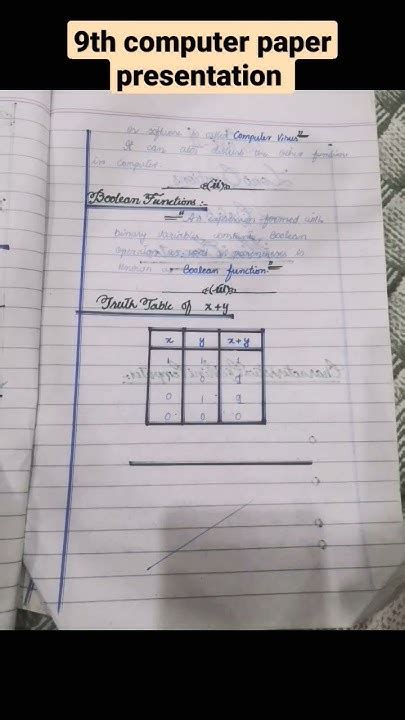 9th computer paper
presentation
or software is called "Computer Virus"
It can also disturb the other functions
in computer.
Boolean Functions :-
"An expression formed with
binary variables, constants, Boolean
operators or parentheses is
known as Boolean function."
Truth Table of x+y
x y x+y
1 1 1
1 0 1
0 1
0 0 0